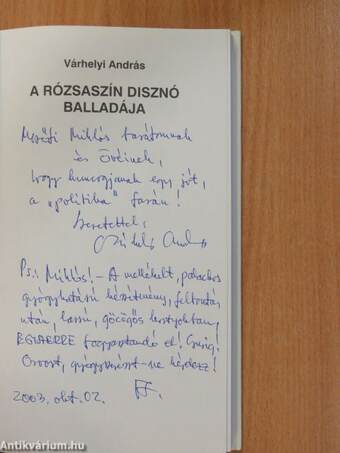 Várhelyi András
A RÓZSASZÍN DISZNÓ
BALLADÁJA
Miklós barátomnak
és Övéinek,
hogy kuncogjanak egy jót,
a „politika" farán!
Szeretettel,
Ps.: Miklós! – A mellékelt, palackos
gyógyhatású készítmény, felbontás
után, lassú, göcögős kortyokban,
EGYBERE fogyasztandó el!
Orvost, gyógyszerészt – ne kérdezz!
2003. okt. 02.
Antikvárium.hu